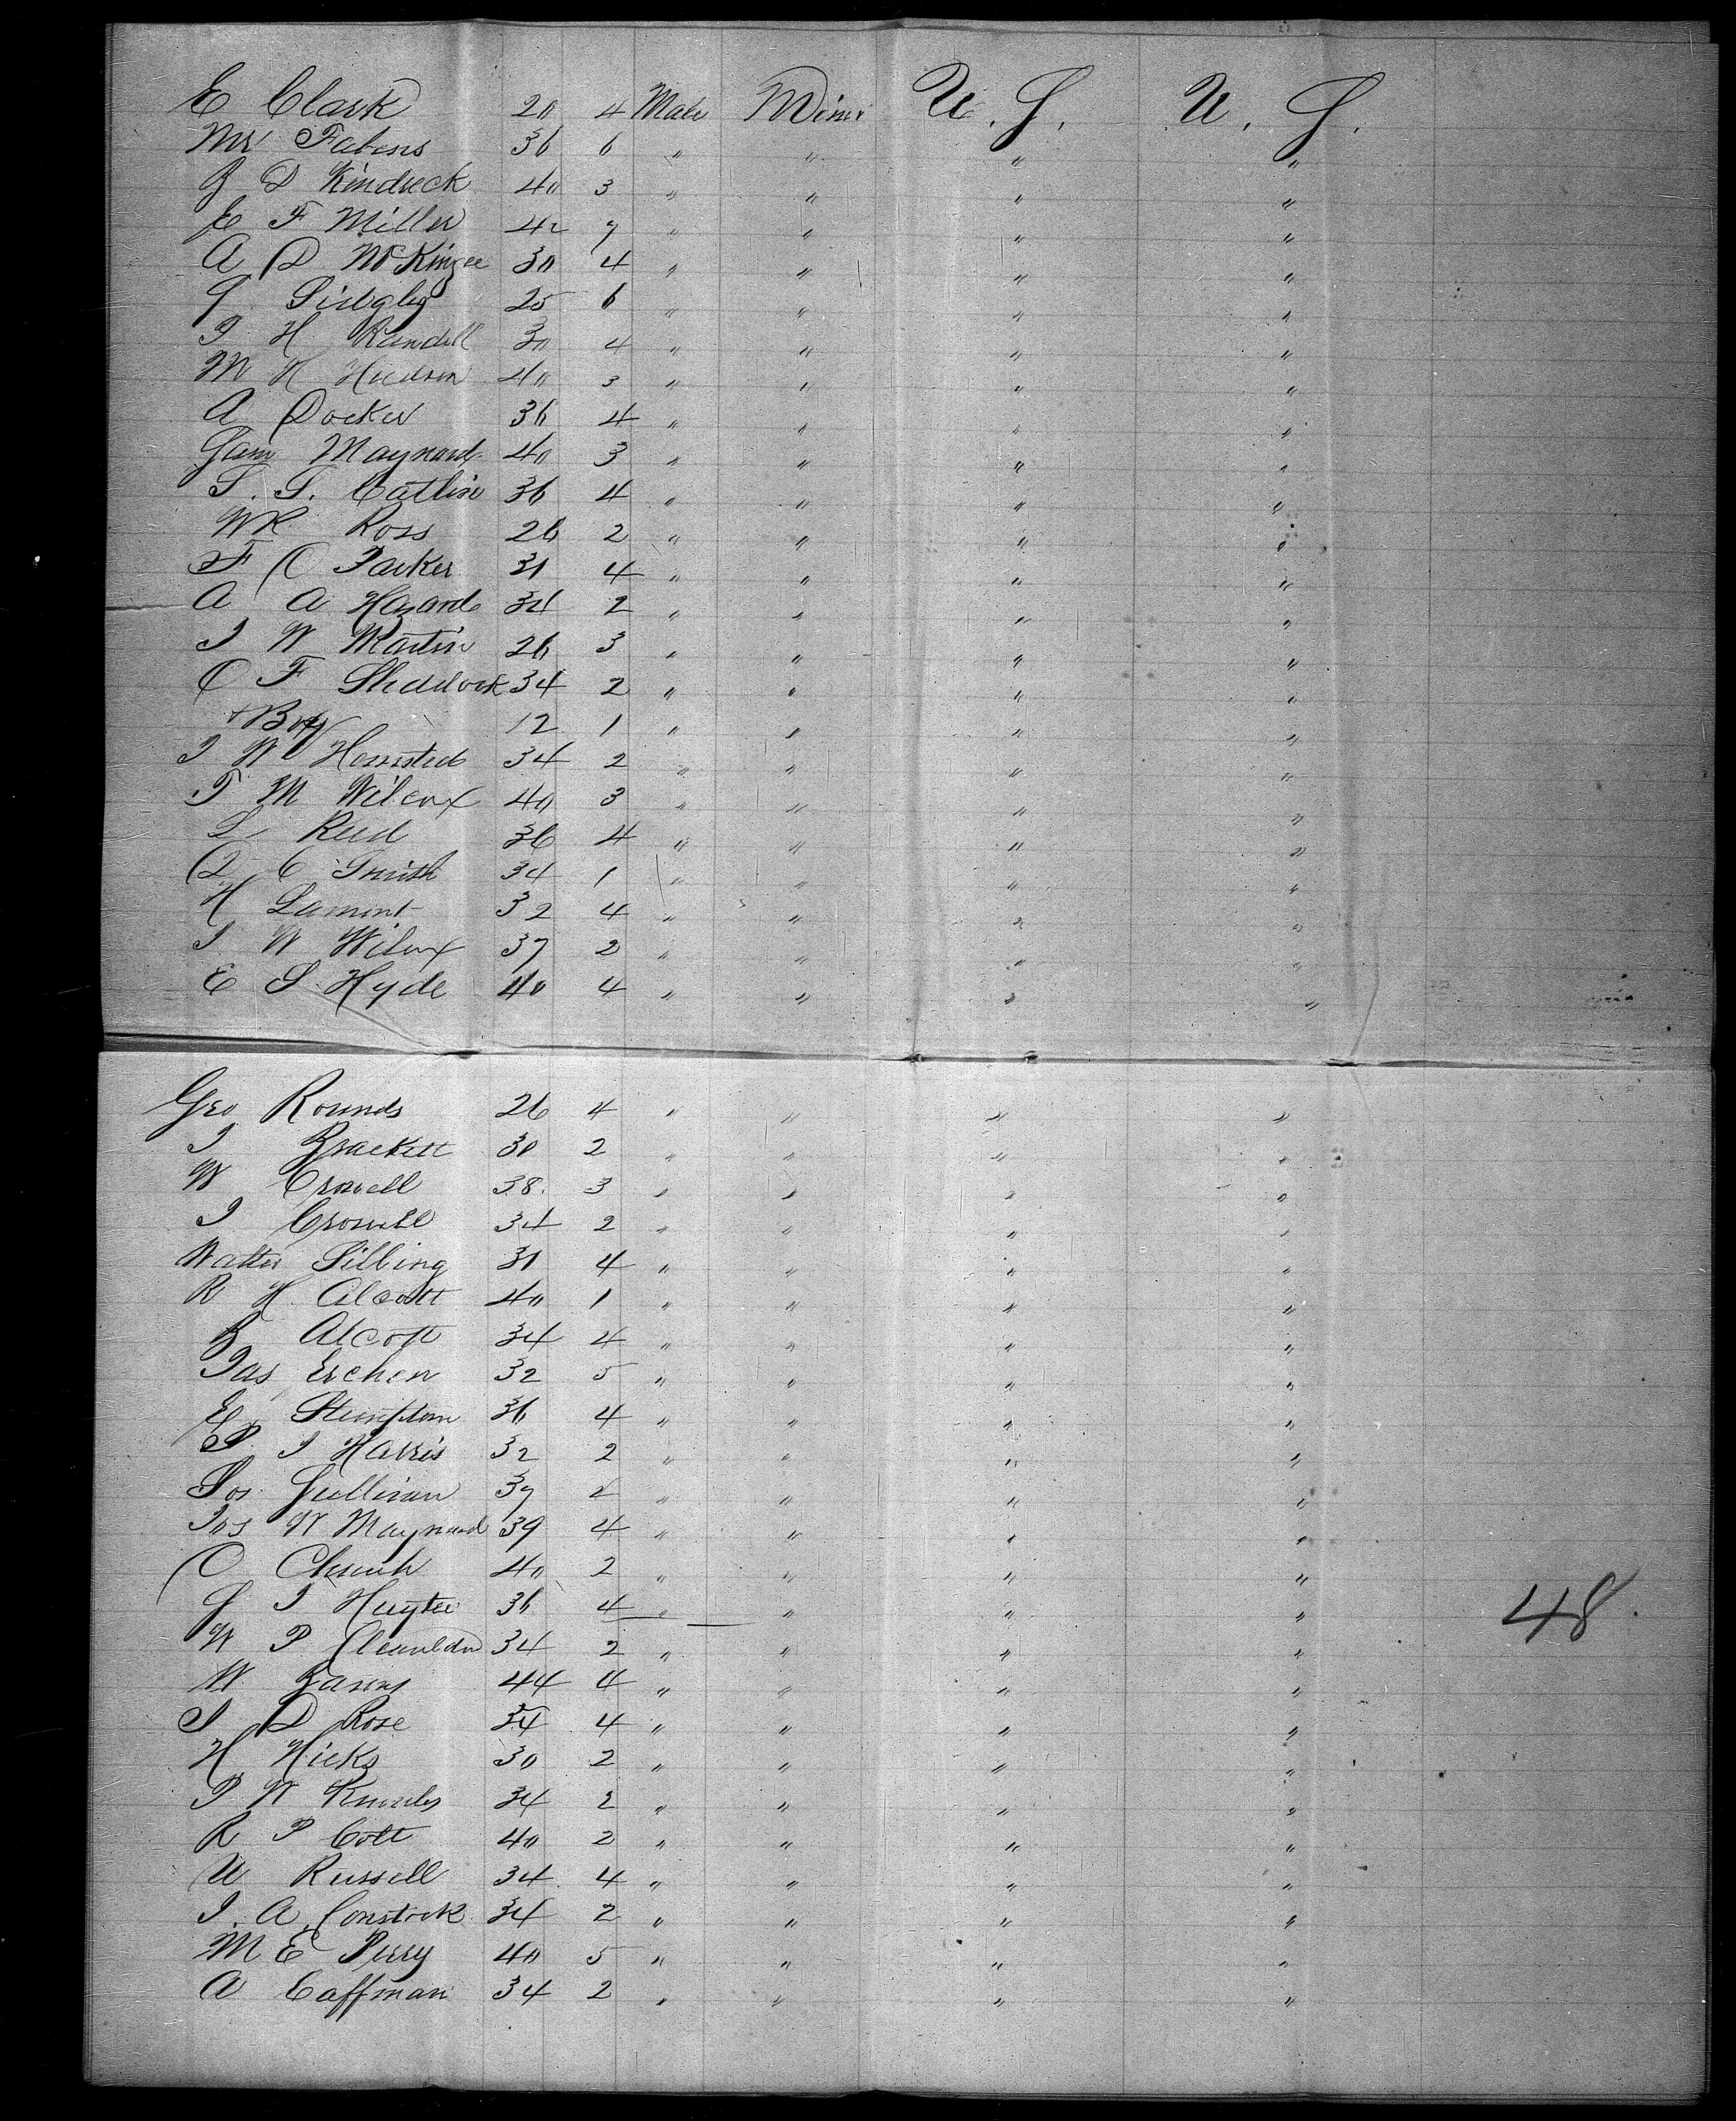 E Clark 20 4 Male Miner U. S. U. S.
Mr Fabens 36 6 " " " "
J D Kindreck 40 3 " " " "
E F Miller 42 7 " " " "
A D McKinzee 30 4 " " " "
25 6 " " " "
J H Randell 30 4 " " " "
M H Hudson 40 3 " " " "
A Docker 36 4 " " " "
Sam Maynard 40 3 " " " "
T. S. Catlin 36 4 " " " "
Wm Ross 26 2 " " " "
F O Parker 31 4 " " " "
A A Hazard 34 2 " " " "
J W Martin 26 3 " " " "
C F Shadock 34 2 " " " "
+ Boy 12 1 " " " "
J W Homsted 34 2 " " " "
T M Wilcox 40 3 " " " "
L Reed 36 4 " " " "
D C Smith 34 1 " " " "
H Lamont 32 4 " " " "
J W Wilcox 37 2 " " " "
E S Hyde 40 4 " " " "
Geo Rounds 26 4 " " " "
J Brackett 30 2 " " " "
W Crowell 38. 3 " " " "
J Crowell 34 2 " " " "
Walter Pilling 31 4 " " " "
R H Alcott 40 1 " " " "
B Alcott 34 4 " " " "
Jas Erchen 32 5 " " " "
E Stumpton 36 4 " " " "
P J Harris 32 2 " " " "
Jos Sullivan 37 2 " " " "
Jos W Maynard 39 4 " " " "
O Church 40 2 " " " "
G J Huyter 36 4 " " " "
48
W P 34 2 " " " "
W 44 4 " " " "
J D Rose 34 4 " " " "
H Hicks 30 2 " " " "
P W Knowles 34 2 " " " "
R P Colt 40 2 " " " "
W Russell 34 4 " " " "
J. A. Constock 34 2 " " " "
M E Perry 40 5 " " " "
A Caffman 34 2 " " " "